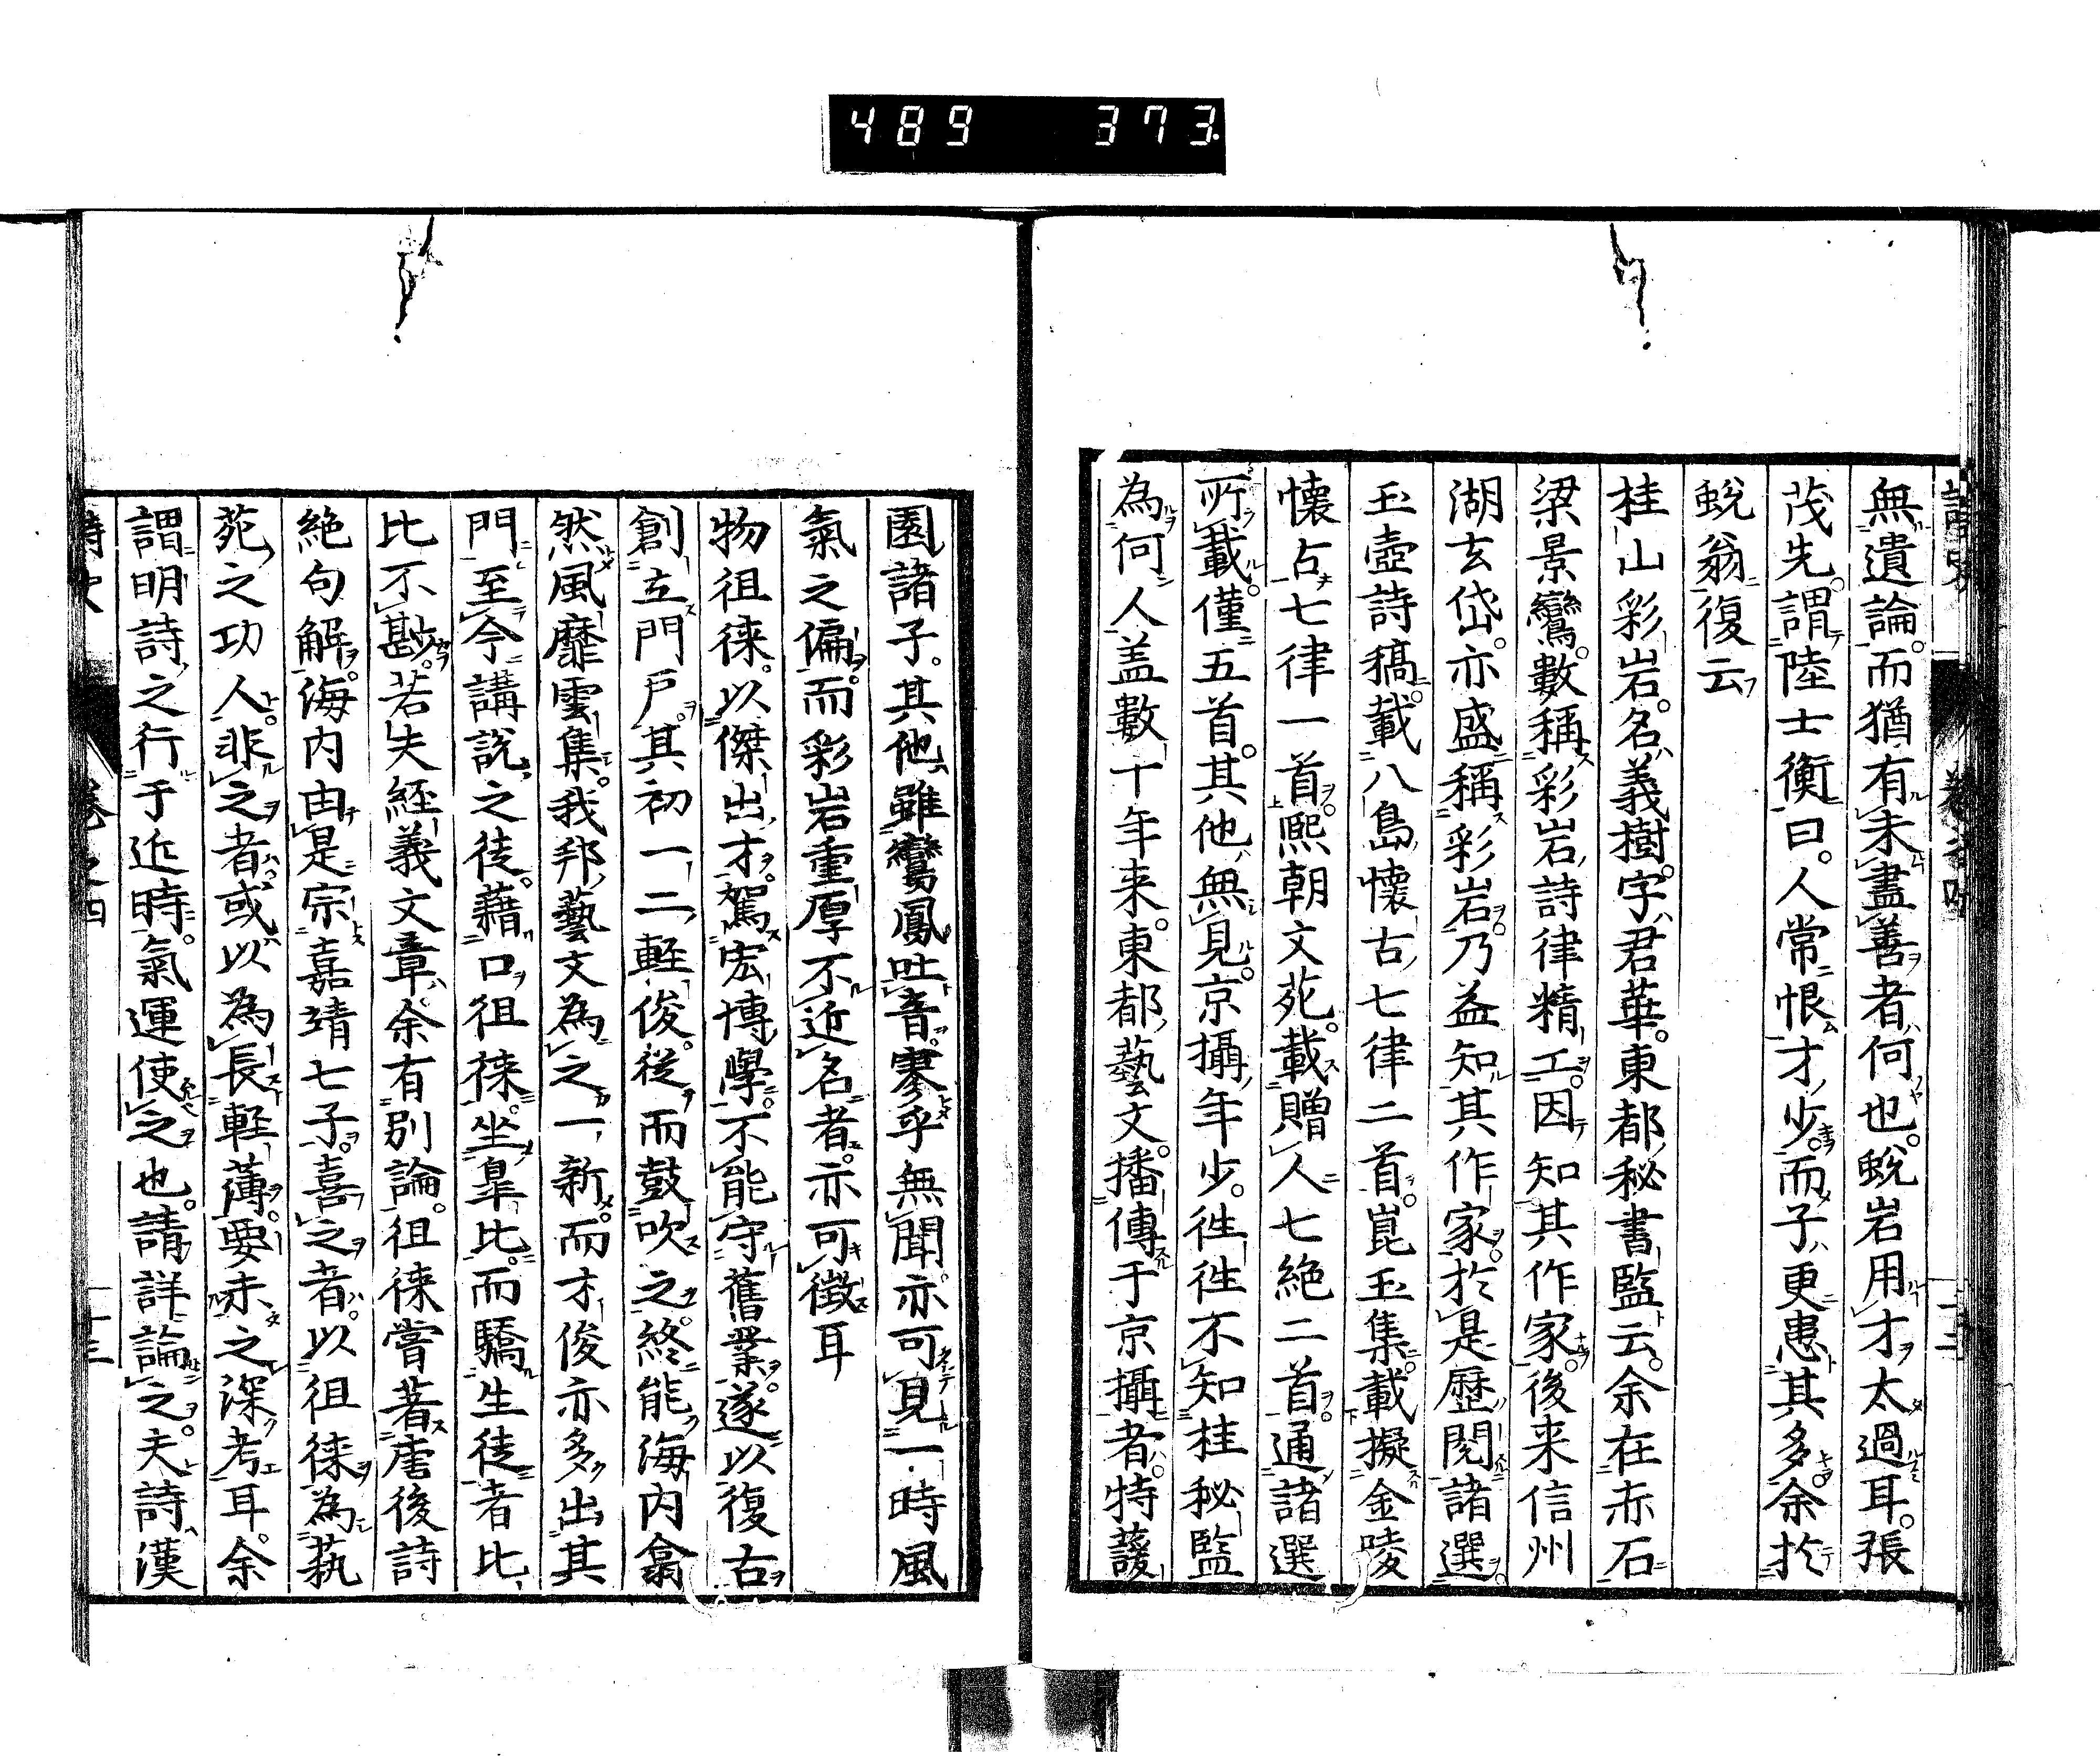 489 373
無遺論。而猶有未盡善者何也。蛻岩用才太過耳。張
茂先。謂陸士衡曰。人常恨才少。而子更患其多。余於
蛻翁復云
桂山彩岩。名義樹。字君華。東都秘書監云。余在赤石
梁景鸞。數稱彩岩詩律精工。因知其作家。後來信州
湖玄岱。亦盛稱彩岩。乃益知其作家。於是歷閱諸選。
玉壺詩稿。載八島懷古七律二首。崑玉集。載擬金陵
懷古七律一首。熙朝文苑。載贈人七絕二首。通諸選
所載。僅五首。其他無見。京攝年少。往往不知桂秘監
為何人。盖數十年来。東都藝文。播傳于京攝者。特蘐
園諸子。其他雖鸞鳳吐音。寥乎無聞。亦可見一時風
氣之偏。而彩岩重厚不近名者。亦可徵耳
物徂徠。以傑出才。駕宏博學。不能守舊業。遂以復古
創立門戶。其初一二輕俊。從而鼓吹之。終能海内翕
然風靡雲集。我邦藝文為之一新。而才俊亦多出其
門。至今講說之徒。藉口徂徠。坐皐比。而驕生徒者比
比不尠。若夫經義文章。余有別論。徂徠嘗著唐後詩
絕句解。海内由是宗嘉靖七子。喜之者。以徂徠為藝
苑之功人。非之者。或以為長輕薄。要未之深考耳。余
謂明詩之行于近時。氣運使之也。請詳論之。夫詩漢